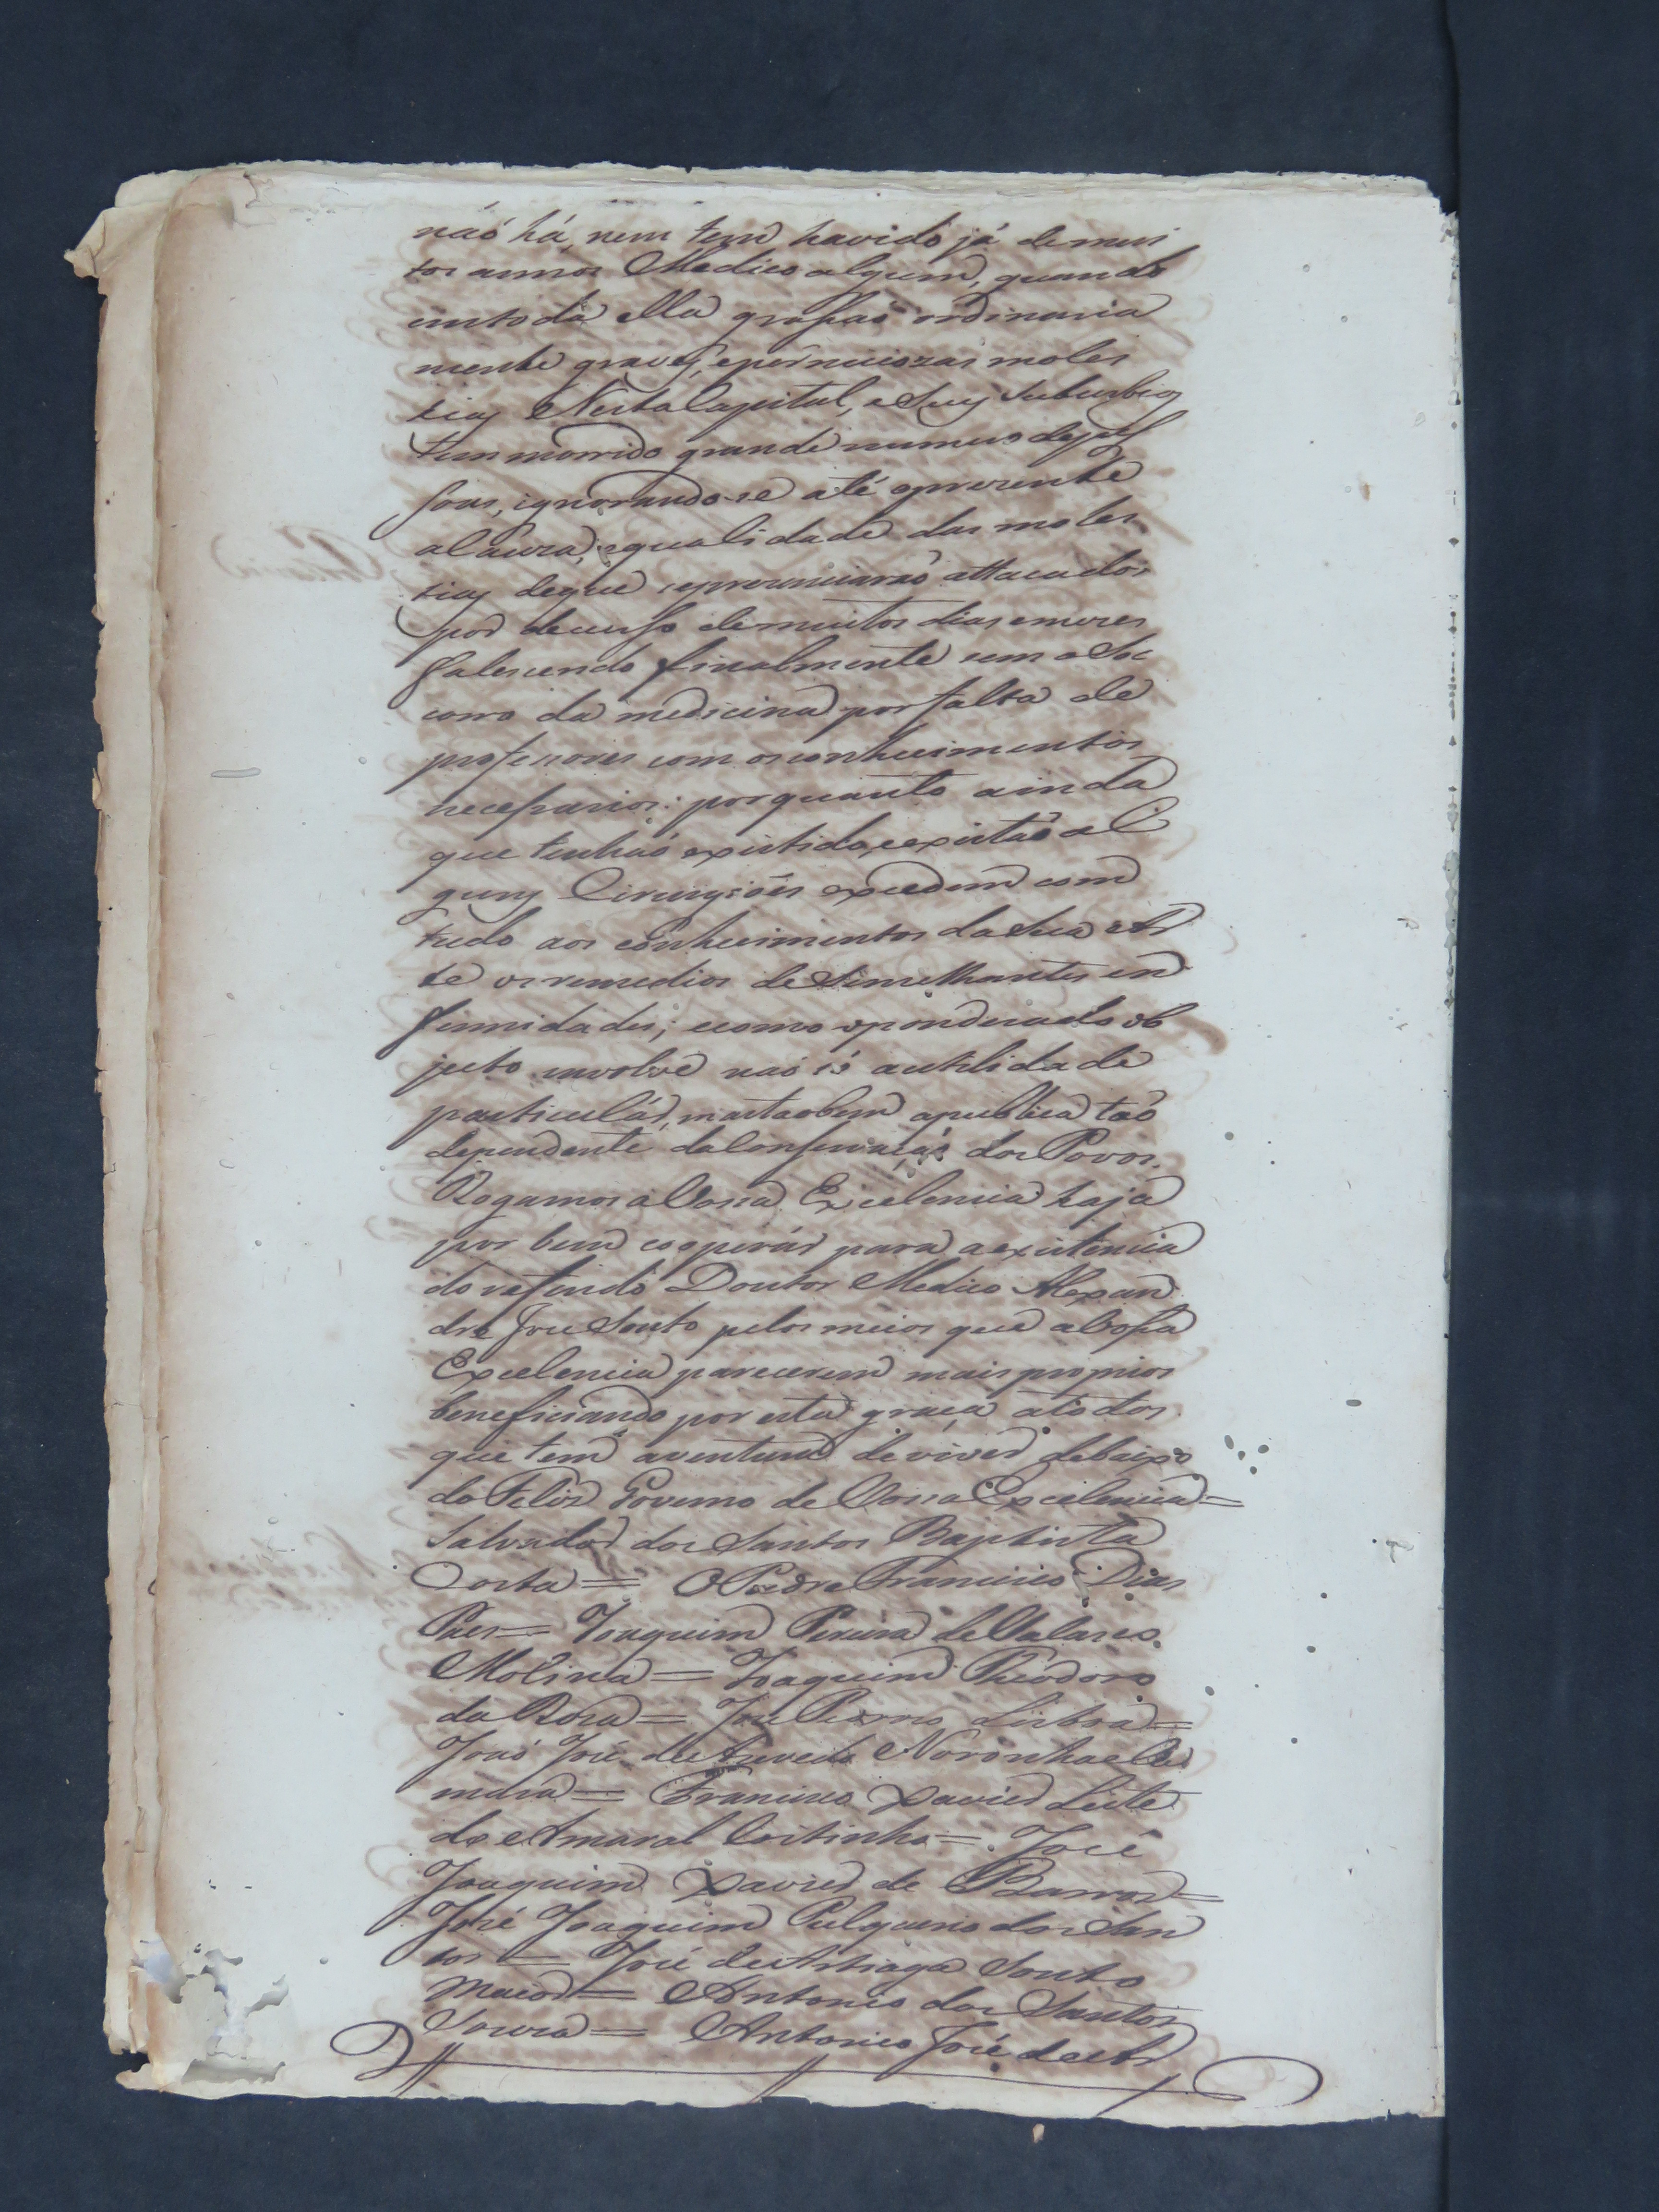 naõ há, nem tem havido já de mui
tos annos Medico algum, quando
em toda ella grassaõ ordinaria
mente graves, e perniciozas moles
tias Nesta Capital, e Seus Suburbios
tem morrido grande numero de pes
soas, ignorando-se até opresente
aCauza, equalidade das moles
tias deque sepronunciaraõ attacados
por decurso demuitos dias emezes
falescendo finalmente sem o So
corro da medicina por falta de
professores com osconhecimentos
necessarios: porquanto ainda
que tenhaõ existido, eexistaõ al
guns Cirurgiões excedem com
tudo aos conhecimentos da Sua Ar
te osremedios de Similhantes en
fermidades; ecomo oponderado ob
jecto involve naõ só autilidade
particulár, mastaobem apublica taõ
dependente daConservaçaõ dos Povos.
Rogamos aVossa Excelencia haja
por bem cooperár para aexistencia
do referido Doutor Medico Alexan
dre Jose Souto pelos meios que aVossa
Excelencia parecerem mais proprios
beneficiando por esta graça atodos
que tem aventura de viver debaixo
do Feliz Governo de Vossa Excelencia =
Salvador dos Santos Baptista
Costa = O Padre Francisco Dias
Paes = Joaquim Pereira de
Molina = Joaquim Theodoro
da Roza = Jose Lisboa =
Joaõ José de Azevedo Noronha e Ca
mara = Francisco Xavier Leite
do Amaral Coitinho = José
Joaquim Xavier de Barros =
José Joaquim Pulquerio dos San
tos = José de Artiaga Souto
Maior = Antonio dos Santos
Souza = Antonio José de Ar